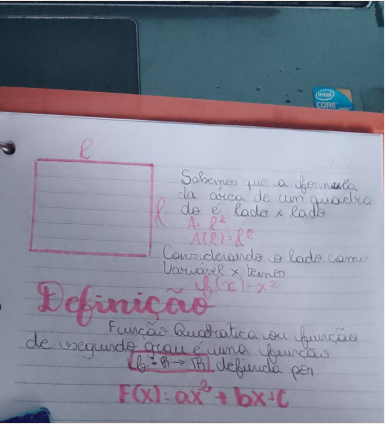 intel
CORE
l
Sabemos que a formula
da área de um quadra
do é lado x lado
l
A = l²
A(l) = l²
Considerando o lado como
Variavel x temos
f(x) = x²
Definição
Função Quadratica ou função
de segundo grau é uma função
f = R → R definida por
F(x) = ax² + bx + C